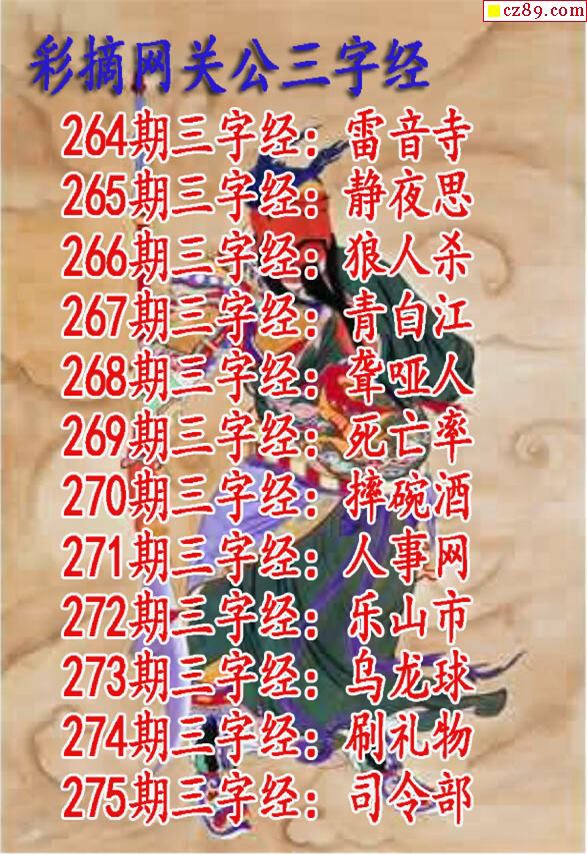 cz89.com
彩摘网关公三字经
264期三字经：雷音寺
265期三字经：静夜思
266期三字经：狼人杀
267期三字经：青白江
268期三字经：聋哑人
269期三字经：死亡率
270期三字经：摔碗酒
271期三字经：人事网
272期三字经：乐山市
273期三字经：乌龙球
274期三字经：刷礼物
275期三字经：司令部